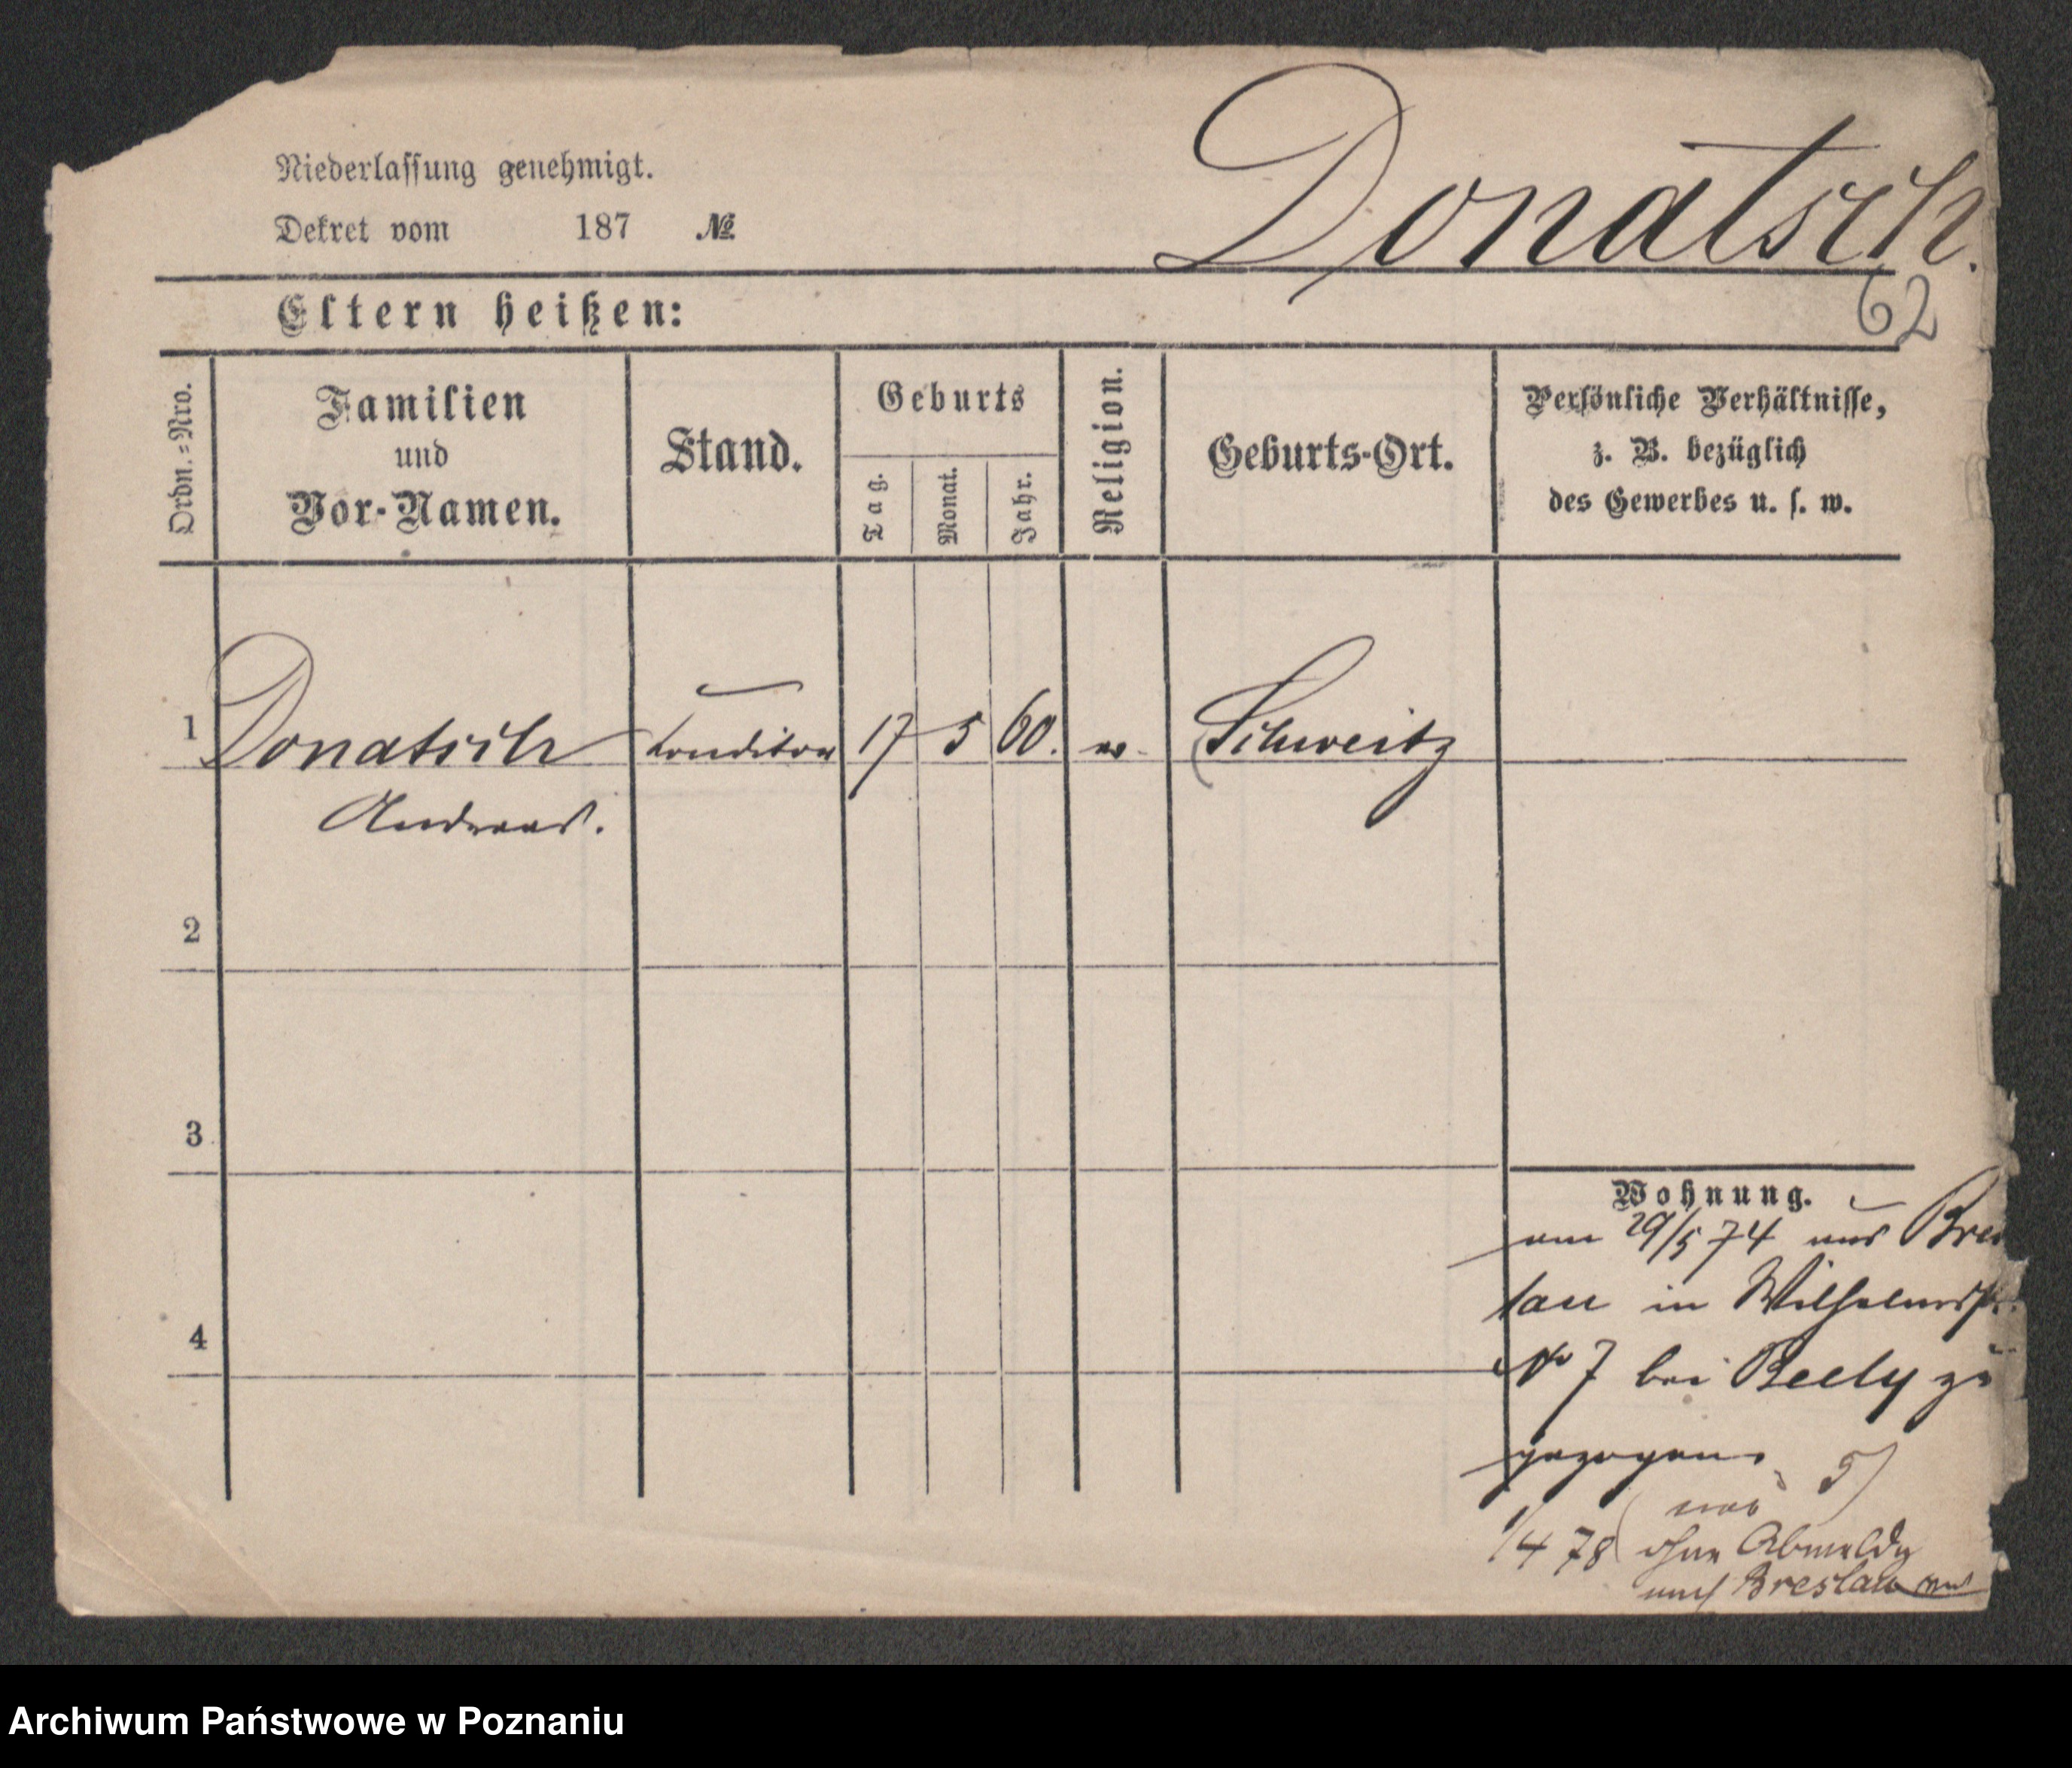 Niederlassung genehmigt.
Dekret vom 187 №
Donatsch.
62
Eltern heißen:
Ordn.=Nro.
Familien
und
Vor-Namen.
Stand.
Geburts
Tag.
Monat.
Jahr.
Religion.
Geburts-Ort.
Persönliche Verhältnisse,
z. B. bezüglich
des Gewerbes u. s. w.
1 Donatsch Conditor 17 5 60. Schweitz
Andreas.
2
3
4
Wohnung.
am 29/5 74 aus Bres
lau in Wilhelmsstr.
No 7 bei Beely zu
gezogen.
5)
1/4 78 ohne Abmeldg
nach Breslau
Archiwum Państwowe w Poznaniu